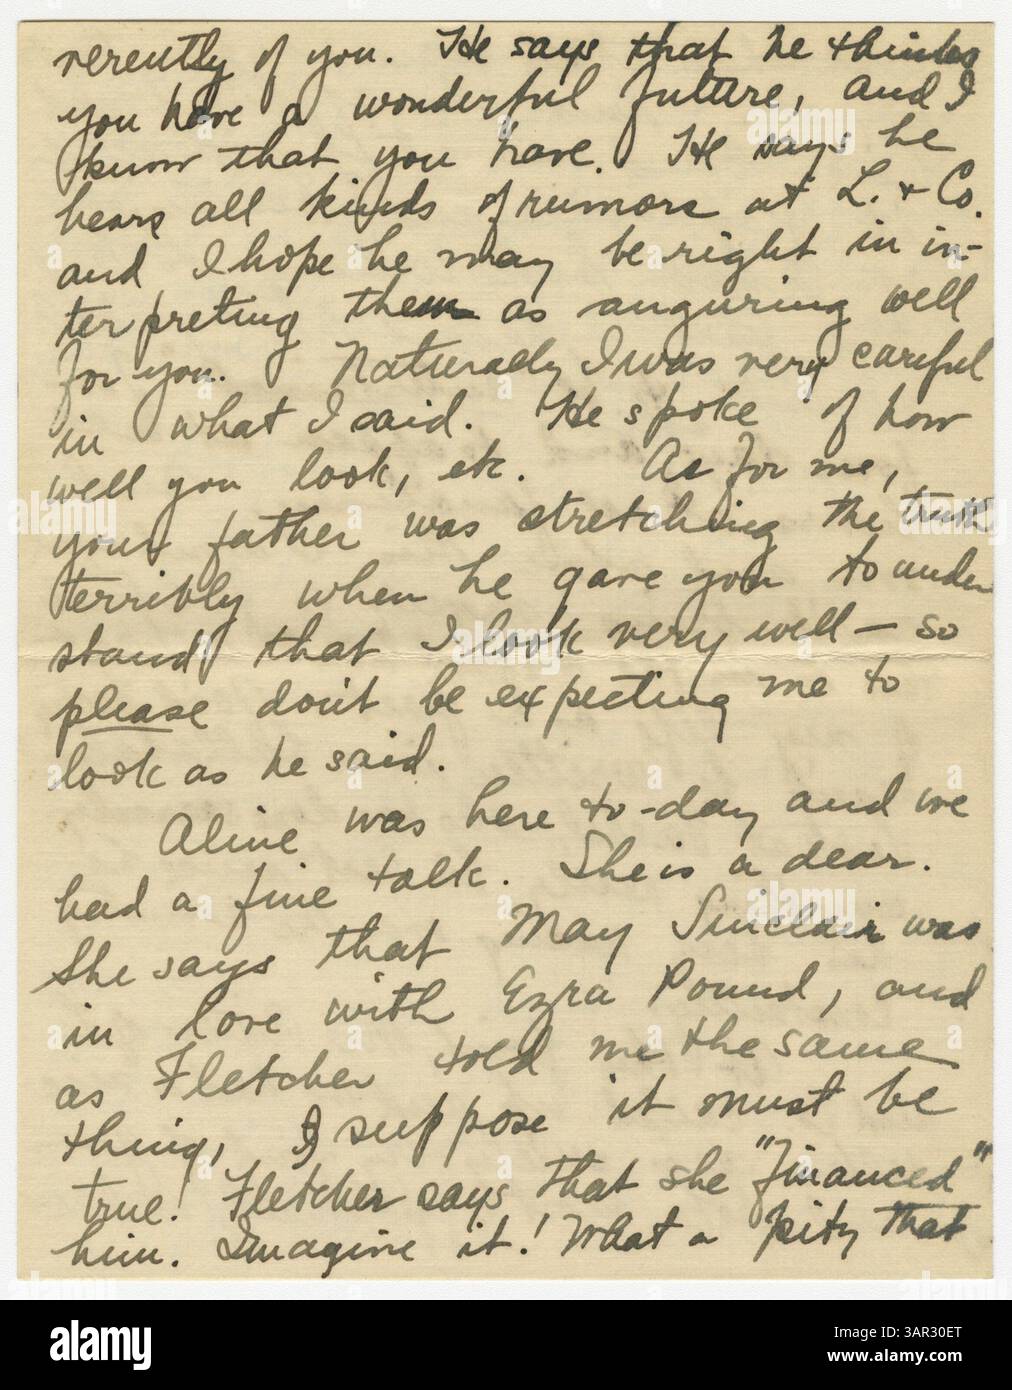 verently of you. He says that he thinks
you have a wonderful future, and I
know that you have. He says he
hears all kinds of rumors at L. & Co.
and I hope he may be right in in-
terpreting them as auguring well
for you. Naturally I was very careful
in what I said. He spoke of how
well you look, etc. As for me,
your father was stretching the truth
terribly when he gave you to under
stand that I look very well — so
please don't be expecting me to
look as he said.
Aline was here to-day and we
had a fine talk. She is a dear.
She says that May Sinclair was
in love with Ezra Pound, and
as Fletcher told me the same
thing, I suppose it must be
true! Fletcher says that she "financed"
him. Imagine it! What a pity that
alamy
Image ID: 3AR30ET
www.alamy.com